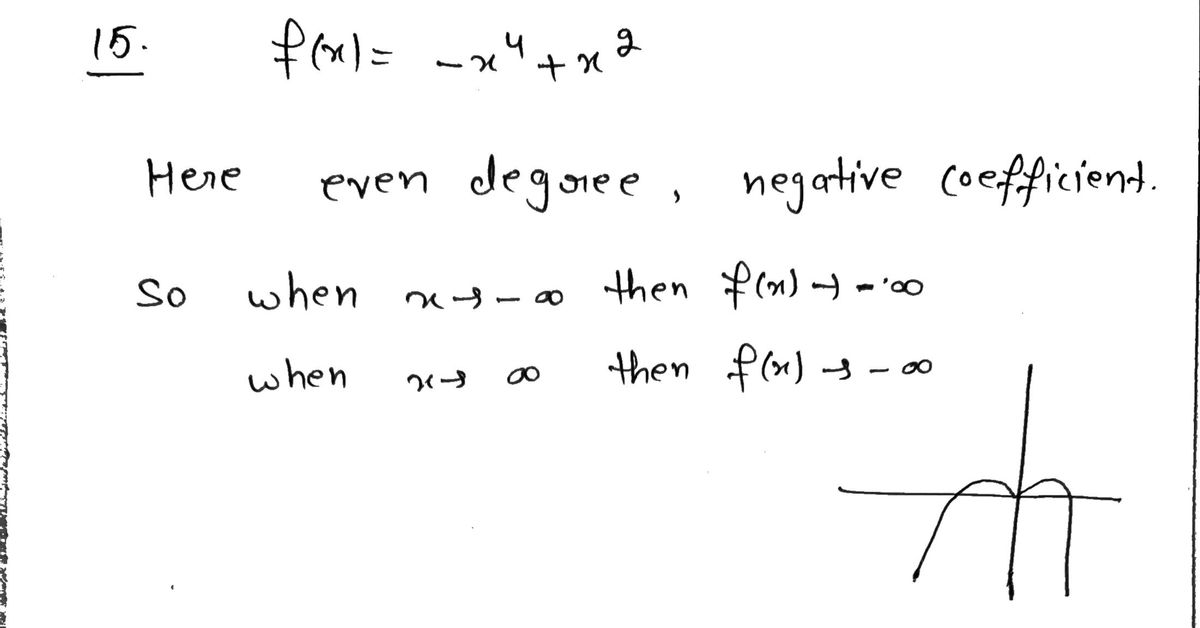 15. f(x) = -x⁴ + x²
Here even degree, negative coefficient.
So when x → -∞ then f(x) → -∞
when x → ∞ then f(x) → -∞